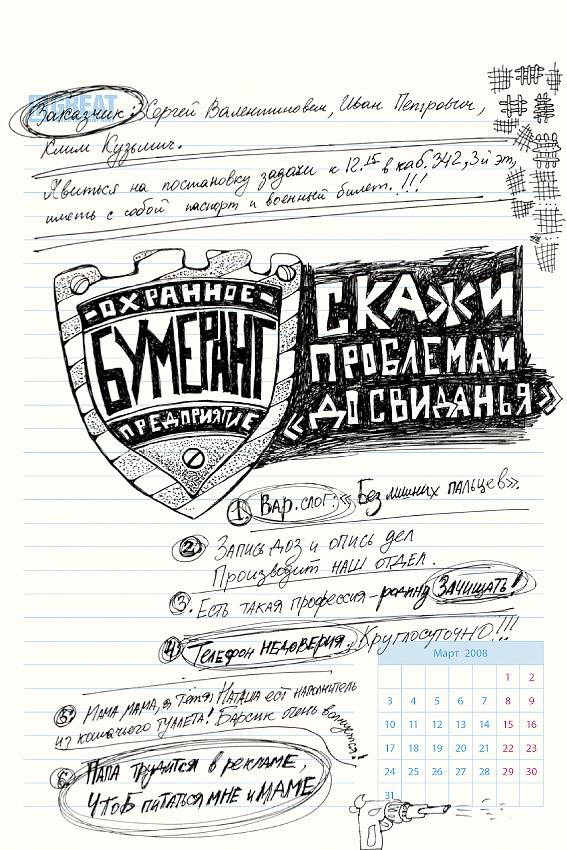 GREAT
Заказчик: Сергей Валентинович, Иван Петрович,
Клим Кузьмич.
Явиться на постановку задачи к 12.15 в каб. 342, 3й эт,
иметь с собой паспорт и военный билет.!!!
-ОХРАННОЕ-
БУМЕРАНГ
ПРЕДПРИЯТИЕ
СКАЖИ
ПРОБЛЕМАМ
«ДО СВИДАНЬЯ»
1. Вар. слог: «Без лишних пальцев».
2. Запись доз и опись дел
Производит наш отдел.
3. Есть такая профессия - родину зачищать!
4. Телефон недоверия. Круглосуточно!!!
5. Мама мама, а тётя Наташа ест наполнитель
из кошачьего туалета! Барсик очень волнуется!
6. Папа трудится в рекламе,
чтоб питаться мне и маме
Март 2008
1 2
3 4 5 6 7 8 9
10 11 12 13 14 15 16
17 18 19 20 21 22 23
24 25 26 27 28 29 30
31